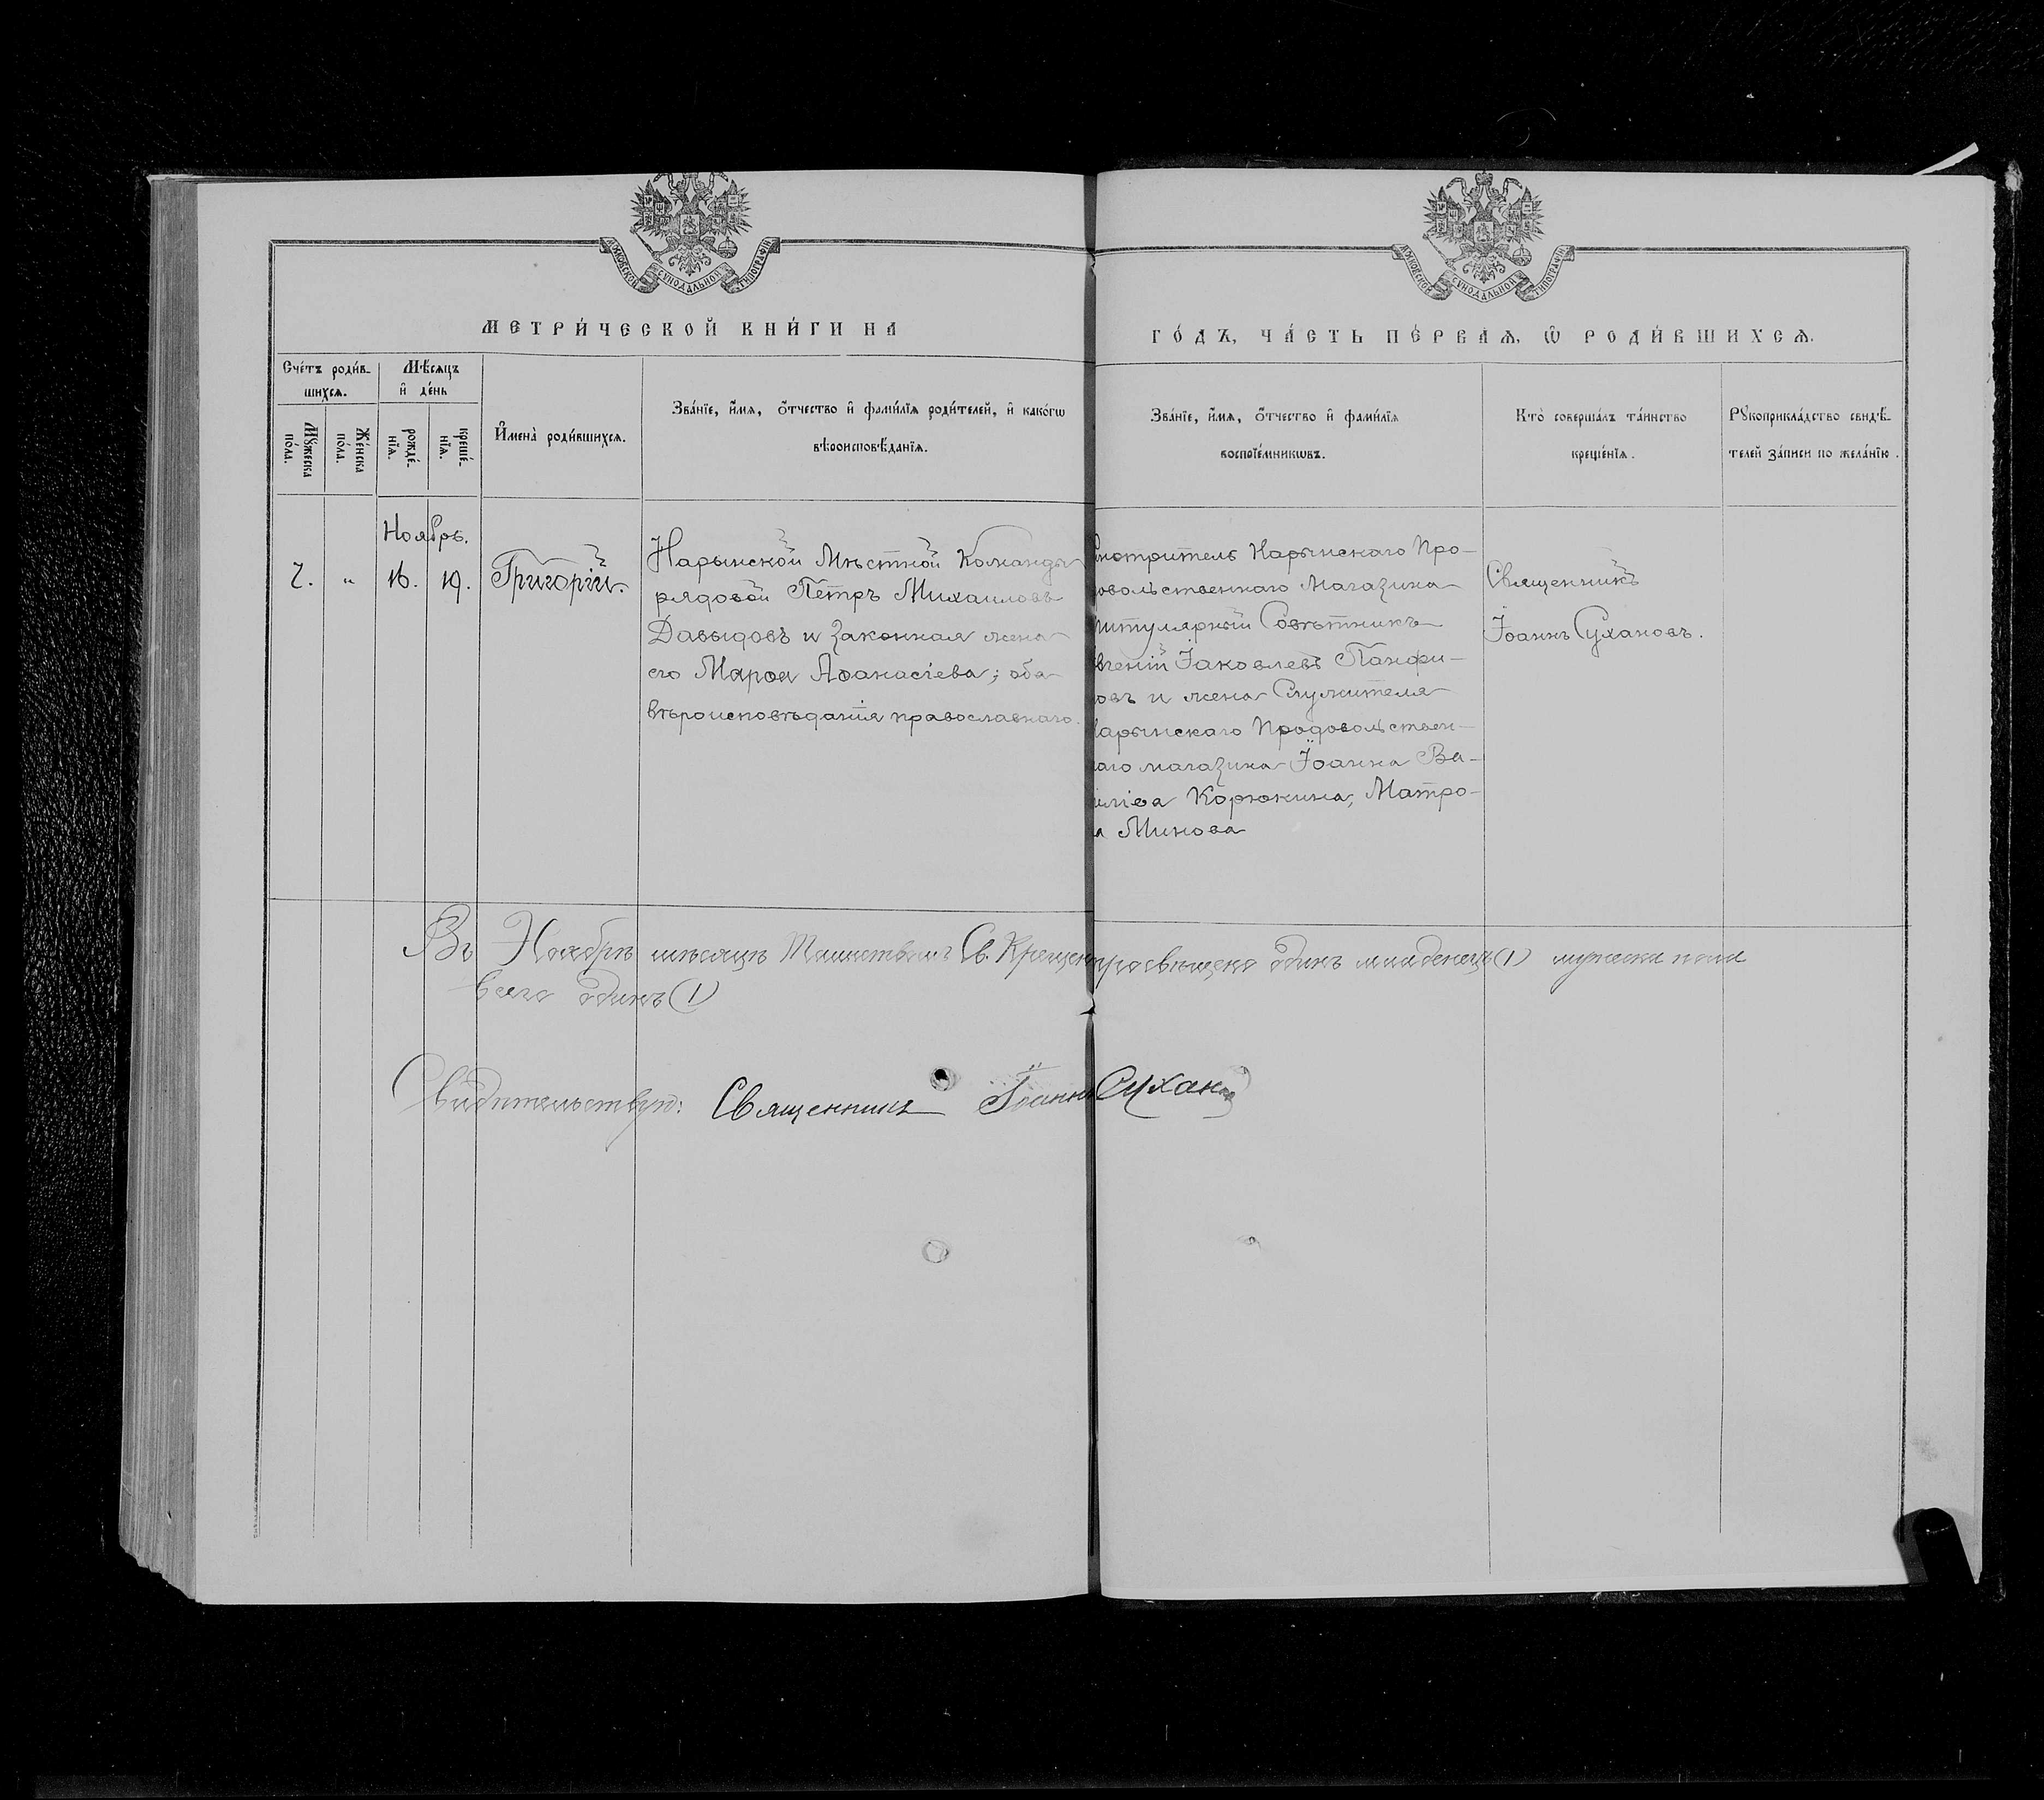 МОСКОВСКОЙ СѴНОДАЛЬНОЙ ТИПОГРАФІИ
МОСКОВСКОЙ СѴНОДАЛЬНОЙ ТИПОГРАФІИ
МЕТРИ́ЧЕСКОЙ КНИ́ГИ НА
ГО́ДЪ, ЧА́СТЬ ПЕ́РВАѦ, Ѿ РОДИ́ВШИХСѦ.
Сче́тъ роди́в-
шихсѧ.
Мѣ́сѧцъ
и҆ де́нь
Мꙋ́жеска
по́ла.
Же́нска
по́ла.
рожде́-
нїѧ.
креще́-
нїѧ.
И҆мена̀ роди́вшихсѧ.
Зва́нїе, и҆́мѧ, ѻ҆́тчество и҆ фами́лїѧ роди́телей, и҆ како́гѡ
вѣроисповѣ́данїѧ.
Зва́нїе, и҆́мѧ, ѻ҆́тчество и҆ фами́лїѧ
воспрїе́мникѡвъ.
Кто̀ соверша́лъ та́инство
креще́нїѧ.
Рꙋкоприкла́дство свидѣ́-
телей за́писи по жела́нїю.
Ноябрь.
7. „ 16. 19. Григорій.
Нарынской Мѣстной Команды
рядовой Петръ Михаиловъ
Давыдовъ и законная жена
его Марѳа Аѳанасіева; оба
вѣроисповѣданія православнаго.
мотритель Нарынскаго Про-
овольственнаго Магазина
итулярный Совѣтникъ
вгеній Іаковлевъ Панфи-
овъ и жена Служителя
арынскаго Продовольствен-
аго магазина Іоанна Ва-
иліва Корюкина, Матро-
а Минова
Священникъ
Іоаннъ Сухановъ.
Въ Ноябрѣ мѣсяцѣ Таинствомъ Св. Крещен просвѣщено одинъ младенецъ (1) мужеска пола
всего одинъ (1)
Свидѣтельствую: Священникъ Іоаннъ Суханов